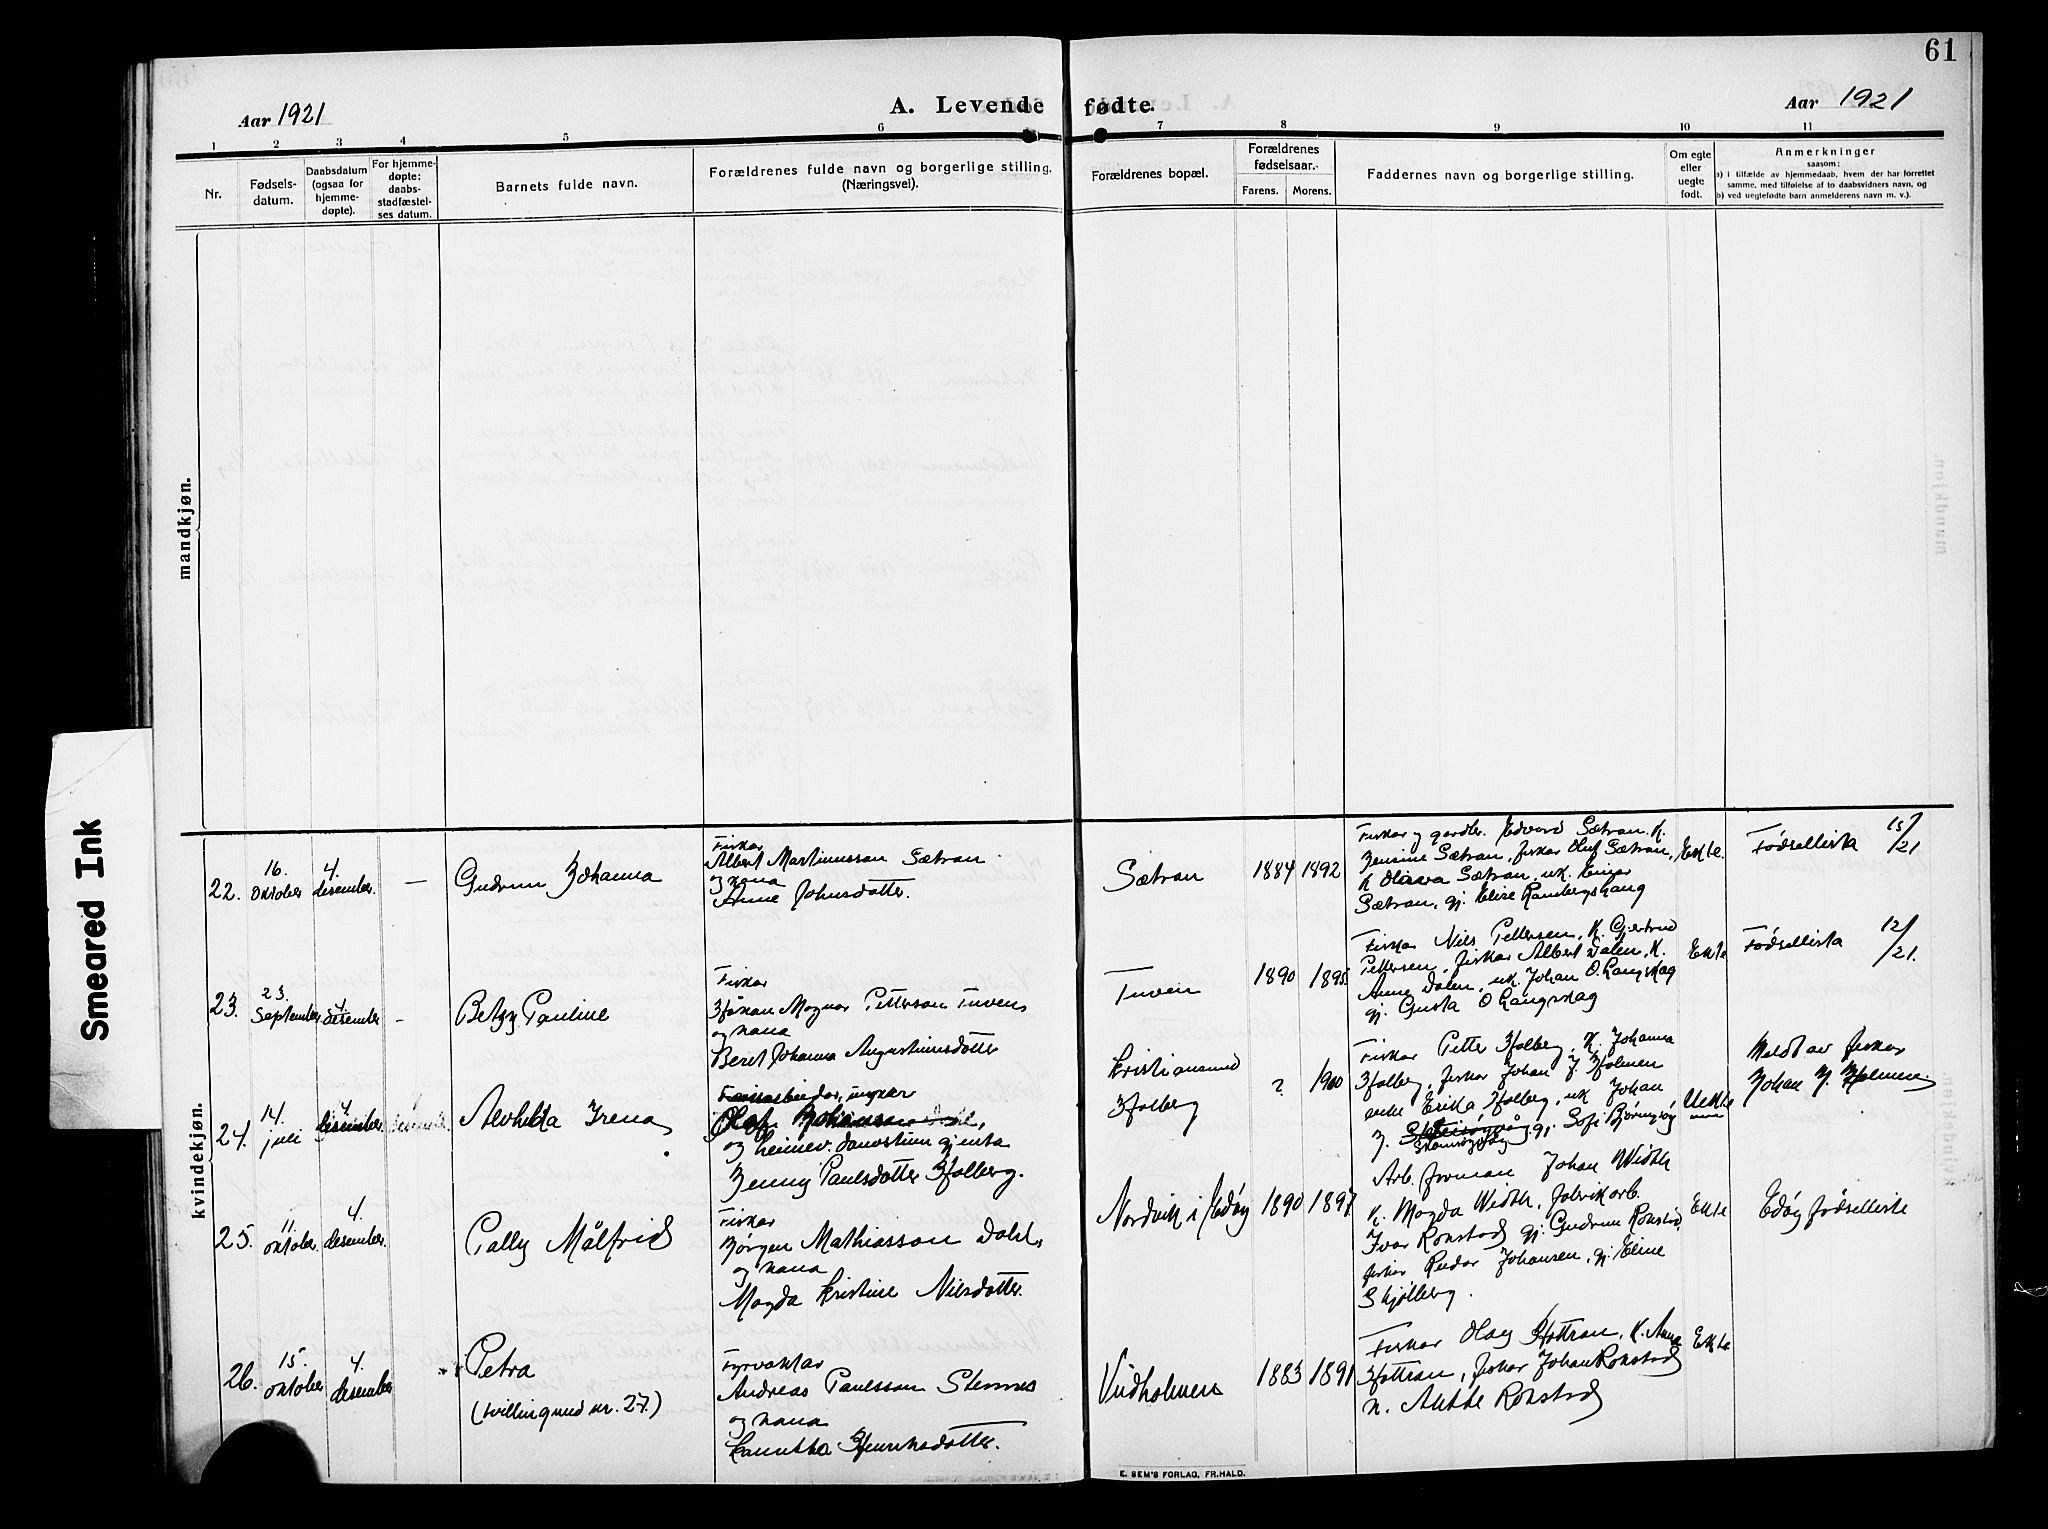 61
Aar 1921
A. Levende fødte.
Aar 1921
1 2 3 4 5 6 7 8 9 10 11
Nr.
Fødsels-
datum.
Daabsdatum
(ogsaa for
hjemme-
døpte).
For hjemme-
døpte:
daabs-
stadfæstel-
ses datum.
Barnets fulde navn.
Forældrenes fulde navn og borgerlige stilling.
(Næringsvei).
Forældrenes bopæl.
Forældrenes
fødselsaar.
Farens. Morens.
Faddernes navn og borgerlige stilling.
Om egte
eller
uegte
født.
Anmerkninger
saasom:
a) i tilfælde av hjemmedaab, hvem der har forrettet
samme, med tilføielse af to daabsvidners navn, og
b) ved uegtefødte barn anmelderens navn m. v.).
mandkjøn.
kvindekjøn.
22.
16.
Oktober
4.
desember.
—
Gudrun Johanna
Fiskar
Albert Martinusson Sætran
og kona
Anne Johnsdotter.
Sætran
1884 1892
Fiskar og gardbr. Edvard Sætran. K.
Jensine Sætran, fiskar Oluf Sætran,
K Olaara Sætran, uk. Einar
Sætran, gj. Elise Rambergskaug
Ekte.
Fødsellista 15/21
23.
23.
September
4
desember
-
Betzy Pauline
Fiskar
Håkan Magnar Petterson Tuven
og kona
Beret Johanna Augustinusdotter
Tuven
1890 1895.
Fiskar Nils Pettersen, K. Gjertrud
Pettersen, fiskar Albert Dalen, K.
Anne Dalen, uk. Johan O. Langskag
gj. Gusta O Langskag
Ekte
Fødsellista 12/21.
24.
14.
juli
4
desember
Alvhilda Irena
Olaf Johansson
og heimev. gjenta
Jenny Paulsdotter Holberg.
Kristiansund
Holberg
? 1900
Fiskar Petter Holberg, K. Johanna
Holberg, fiskar Johan J Holmen
enke Erika Holberg, uk Johan
J. gj. Sofi Bjørnsøy
Uekte
Meldt av fiskar
Johan J. Holmen.
25.
11
oktober.
4.
desember.
Pally Målfrid
Fiskar
Jørgen Mathiasson Dahl,
og kona
Magda Kristine Nilsdotter.
Nordvik i Edøy
1890 1897
Arb. forman Johan Width
K. Magda Width, fabrikarb.
Ivar Rokstad gj. Gudrun Rokstad
fiskar Reidar Johansen, gj. Eline
Skjølberg.
Ekte
Edøy fødselliste
26.
15.
oktober
4.
desember
Petra
(tvilling med nr. 27.)
Fyrvaktar
Andreas Paulsson Stennes
og kona
Henriksdotter.
Vedholmen
1883 1891
Fiskar Olay Hottran, K. Anna
Hottran, fiskar Johan Rokstad
K. Rokstad
Ekte
E. SEM'S FORLAG, FR.HALD.
Smeared Ink